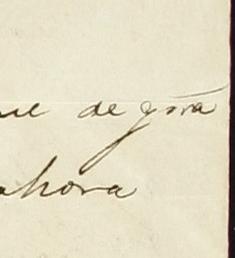 ue de gõra
ahora